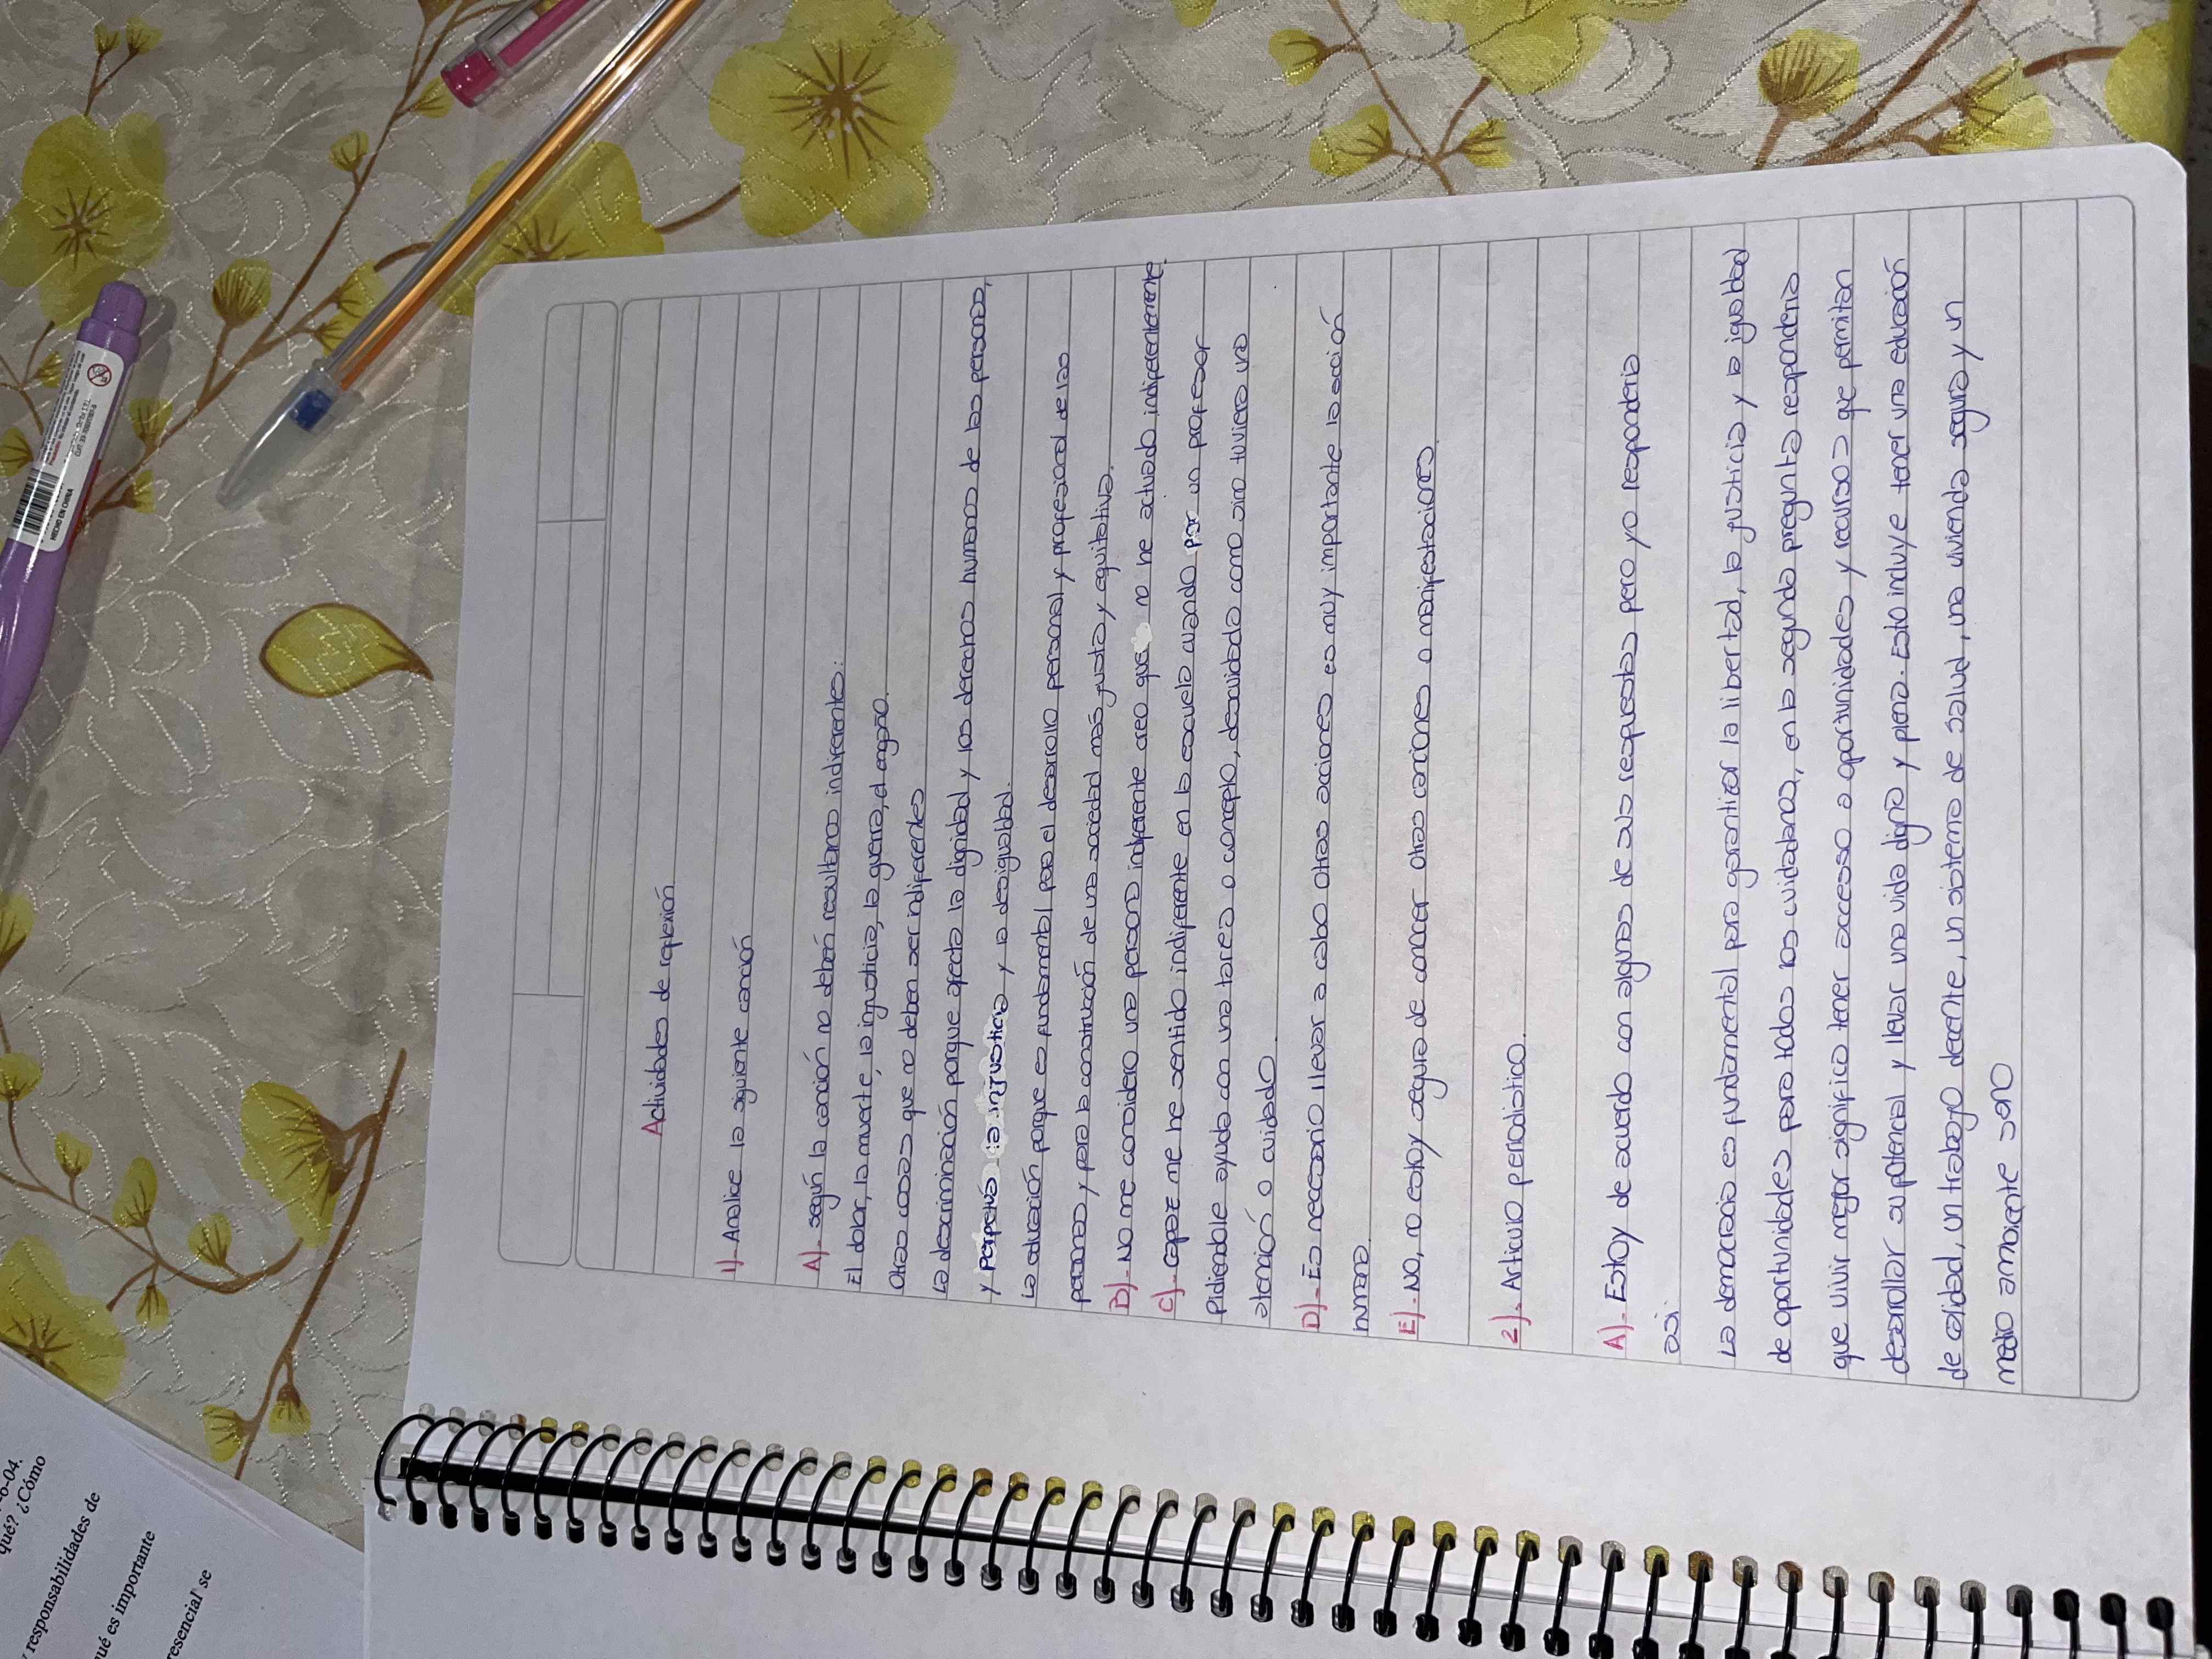 Actividades de reflexión.
1)- Analice la siguiente canción
A)- según la canción no deben resultarnos indiferentes:
El dolor, la muerte, la injusticia, la guerra, el engaño.
Otras cosas que no deben ser indiferentes
La descriminación porque afecta la dignidad y los derechos humanos de las personas,
y perpetua la injusticia y la desigualdad.
La educación porque es fundamental para el desarrollo personal y profesional de las
personas y para la construcción de una sociedad más justa y equitativa.
B)- No me considero una persona indiferente creo que no he actuado indiferentemente.
C)- Capaz me he sentido indiferente en la escuela cuando por un profesor
Pidiendole ayuda con una tarea o concepto, descuidada como sino tuviera una
atención o cuidado.
D)- Es necesario llevar a cabo otras acciones es muy importante la acción
humana.
E)- No, no estoy segura de conocer otras canciones o manifestaciones.
2)- Articulo periodistico.
A)- Estoy de acuerdo con algunas de sus respuestas pero yo responderia
asi:
La democracia es fundamental para garantizar la libertad, la justicia y la igualdad
de oportunidades para todos los cuidadanos, en la segunda pregunta responderia
que vivir mejor significa tener accesso a oportunidades y recursos que permitan
desarrollar su potencial y llevar una vida digna y plena. Esto incluye tener una educación
de calidad, un trabajo decente, un sistema de salud, una vivienda segura y un
medio ambiente sano
HECHO EN CHINA
o-04.
qué? ¿Cómo
y responsabilidades de
qué es importante
resencial" se